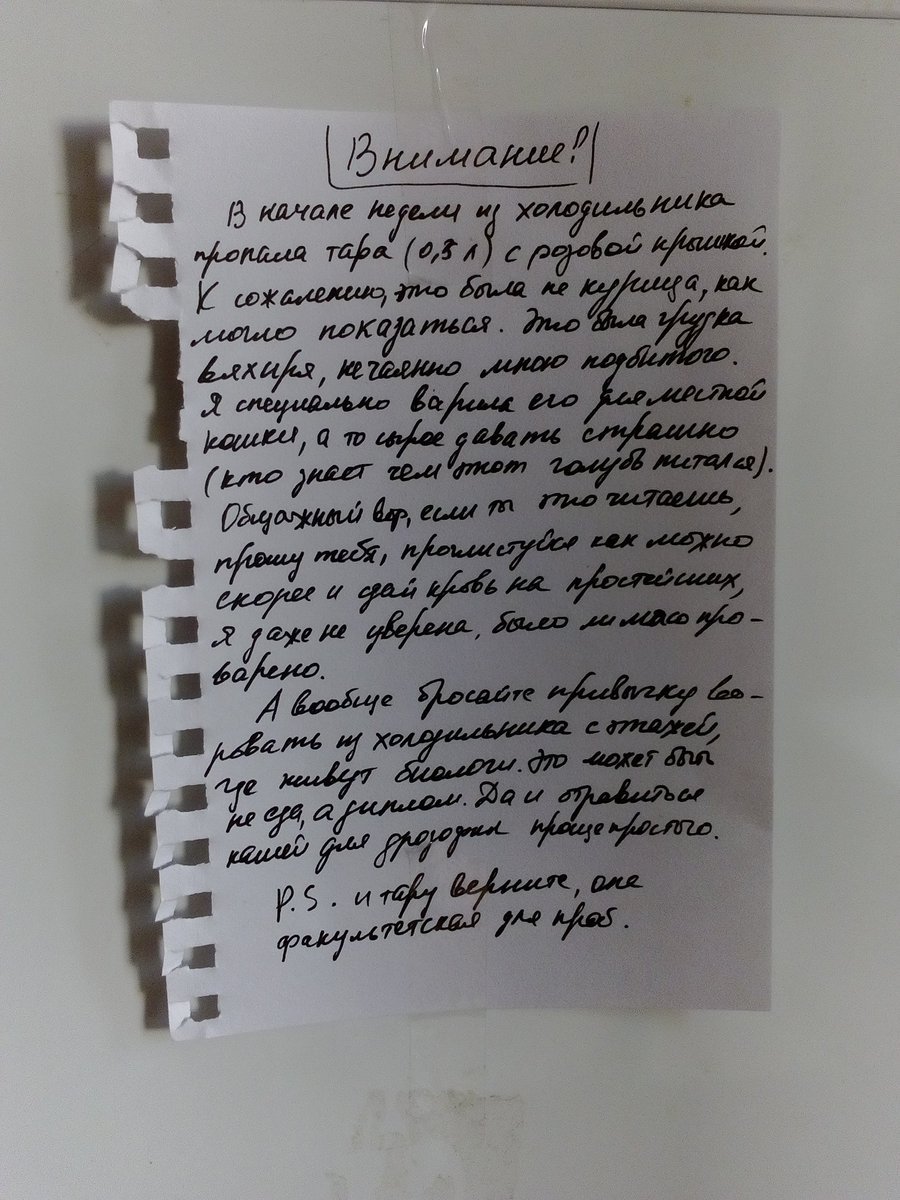 Внимание!
В начале недели из холодильника
пропала тара (0,5 л) с розовой крышкой.
К сожалению, это была не курица, как
могло показаться. Это была грудка
вяхиря, нечаянно мною подбитого.
Я специально варила его для местной
кошки, а то сырое давать страшно
(кто знает чем этот голубь питался).
Общажный вор, если ты это читаешь,
прошу тебя, проглистуйся как можно
скорее и сдай кровь на простейших,
я даже не уверена, было ли мясо про-
варено.
А вообще бросайте привычку во-
ровать из холодильника с этажей,
где живут биологи. Это может быть
не еда, а диплом. Да и отравиться
кашей для дрозофил проще простого.
P.S. и тару верните, она
факультетская для проб.